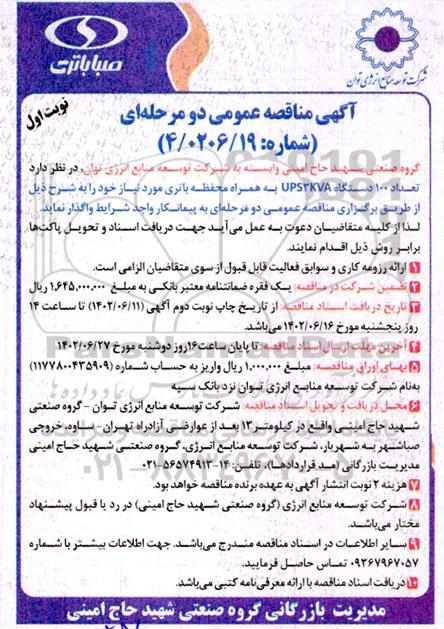 صباباتری
شرکت توسعه منابع انرژی توان
نوبت اول
آگهی مناقصه عمومی دو مرحله‌ای
(شماره: ۴/۰۲۰۶/۱۹)
گروه صنعتی شهید حاج امینی وابسته به شرکت توسعه منابع انرژی توان، در نظر دارد
تعداد ۱۰۰ دستگاه UPS۳KVA به همراه محفظه باتری مورد نیاز خود را به شرح ذیل
از طریق برگزاری مناقصه عمومی دو مرحله‌ای به پیمانکار واجد شرایط واگذار نماید.
لذا از کلیه متقاضیان دعوت به عمل می‌آید جهت دریافت اسناد و تحویل پاکت‌ها
برابر روش ذیل اقدام نمایند.
۱ ارائه رزومه کاری و سوابق فعالیت قابل قبول از سوی متقاضیان الزامی است.
۲ تضمین شرکت در مناقصه: یک فقره ضمانتنامه معتبر بانکی به مبلغ ۱,۶۴۵,۰۰۰,۰۰۰ ریال
۳ تاریخ دریافت اسناد مناقصه: از تاریخ چاپ نوبت دوم آگهی (۱۴۰۲/۰۶/۱۱) تا ساعت ۱۴
روز پنجشنبه مورخ ۱۴۰۲/۰۶/۱۶ می‌باشد.
۴ آخرین مهلت ارسال اسناد مناقصه: تا پایان ساعت ۱۶ روز دوشنبه مورخ ۱۴۰۲/۰۶/۲۷
۵ بهای اوراق مناقصه: مبلغ ۱,۰۰۰,۰۰۰ ریال واریز به حساب شماره (۱۱۷۷۸۰۰۴۳۵۹۰۹)
به‌نام شرکت توسعه منابع انرژی توان نزد بانک سپه
۶ محل دریافت و تحویل اسناد مناقصه: شرکت توسعه منابع انرژی توان - گروه صنعتی
شهید حاج امینی واقع در کیلومتر ۱۳ بعد از عوارضی آزادراه تهران - ساوه، خروجی
صباشهر به شهریار، شرکت توسعه منابع انرژی، گروه صنعتی شهید حاج امینی
مدیریت بازرگانی (مد قراردادها)، تلفن: ۱۴-۵۶۵۷۴۹۱۳-۰۲۱
۷ هزینه ۲ نوبت انتشار آگهی به عهده برنده مناقصه خواهد بود.
۸ شرکت توسعه منابع انرژی (گروه صنعتی شهید حاج امینی) در رد یا قبول پیشنهاد
مختار می‌باشد.
۹ سایر اطلاعات در اسناد مناقصه مندرج می‌باشد. جهت اطلاعات بیشتر با شماره
۰۹۳۶۷۹۶۷۰۵۷ تماس حاصل فرمایید.
۱۰ دریافت اسناد مناقصه با ارائه معرفی‌نامه کتبی می‌باشد.
مدیریت بازرگانی گروه صنعتی شهید حاج امینی